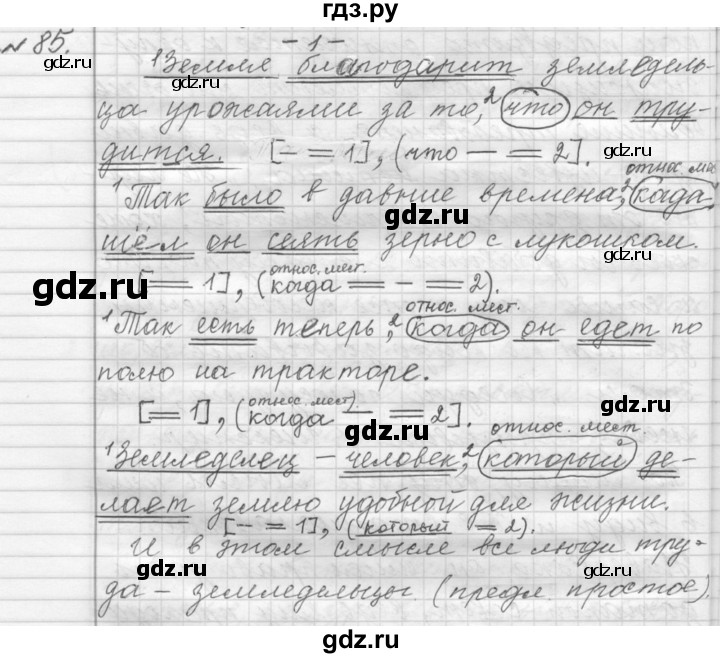 гдз.ру
№ 85.
- 1 -
¹Земля благодарит земледель-
ца урожаями за то, ²что он тру-
дится. [— = 1], (что — = 2].
относ. мес
¹Так было в давние времена, ²када
шёл он сеять зерно с лукошком.
относ. мест.
[= 1], (когда = — = 2).
относ. мест.
¹Так есть теперь, ²когда он едет по
полю на тракторе.
относ. мест.
[= 1], (когда — = 2].
относ. мест.
¹Земледелец – человек, ²который де-
лает землю удобной для жизни.
[— = 1], (который = 2).
И в этом смысле все люди тру-
да – земледельцы (предл. простое).
gdz.ru
gdz.ru
gdz.ru
gdz.ru
gdz.ru
gdz.ru
gdz.ru
gdz.ru
gdz.ru
gdz.ru
gdz.ru